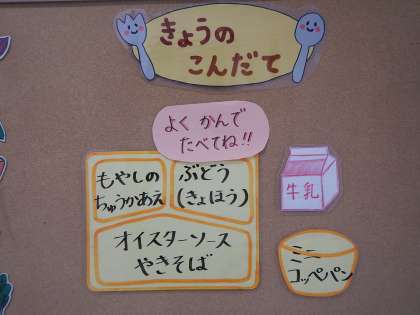 きょうの
こんだて
よく かんで
たべてね!!
もやしの
ちゅうかあえ
ぶどう
(きょほう)
オイスターソース
やきそば
牛乳
ミニ
コッペパン